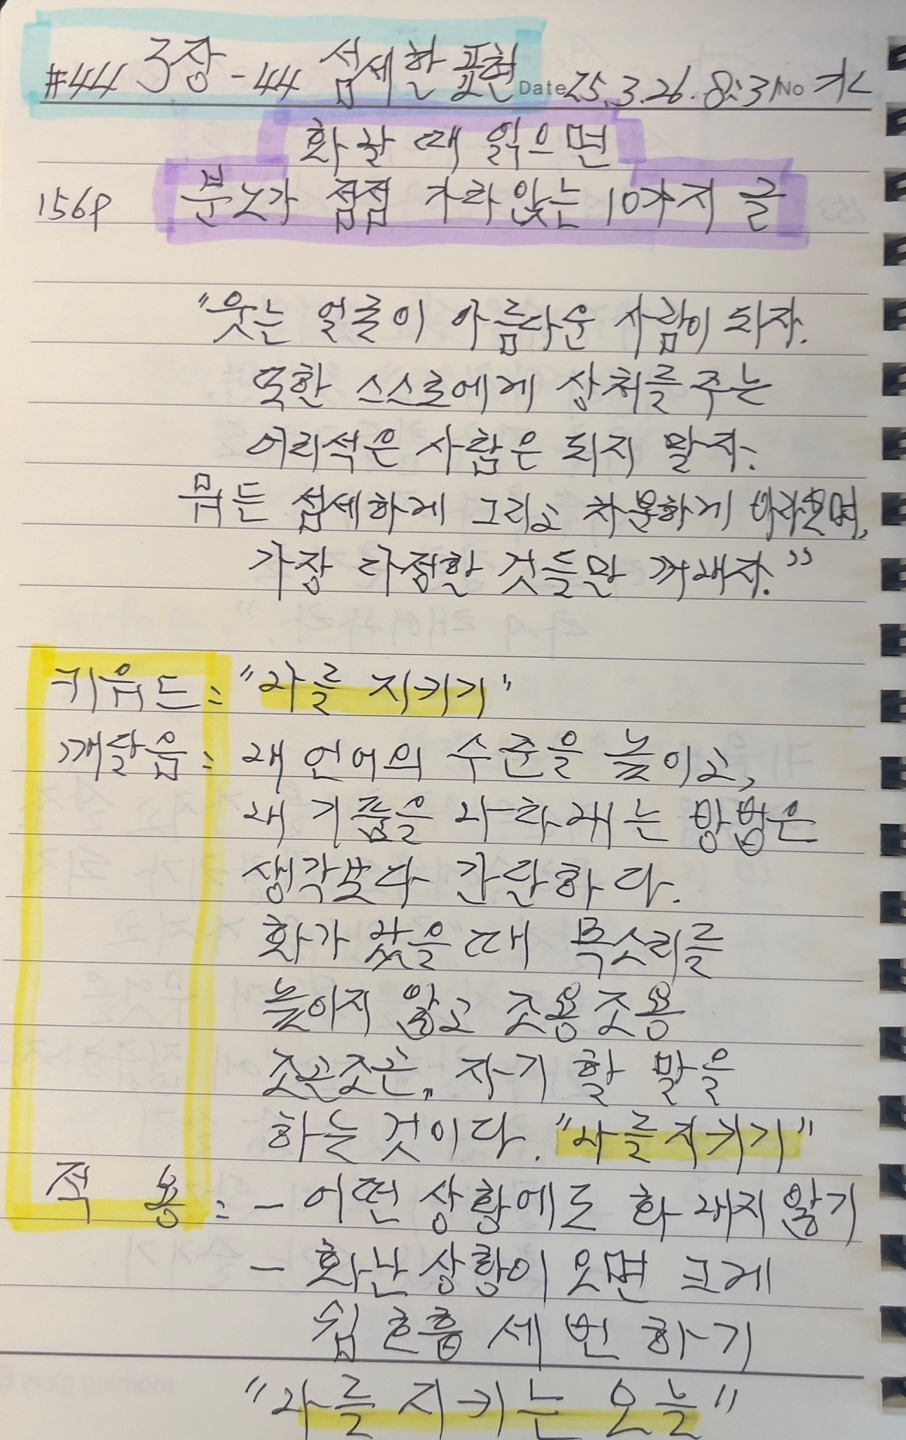 #44 3장 - 44 섬세한 표현 Date 25.3.26. 8:31 No 가
화날 때 읽으면
156P 분노가 점점 가라앉는 10가지 글
"웃는 얼굴이 아름다운 사람이 되자.
또한 스스로에게 상처를 주는
어리석은 사람은 되지 말자.
뭐든 섬세하게 그리고 차분하게 바라보며,
가장 다정한 것들만 꺼내자."
키워드 : "나를 지키기"
깨달음 : 내 언어의 수준을 높이고,
내 기품을 나타내는 방법은
생각보다 간단하다.
화가 났을 때 목소리를
높이지 않고 조용조용
조곤조곤, 자기 할 말을
하는 것이다. "나를 지키기"
적 용 : - 어떤 상황에도 화 내지 않기
- 화난 상황이 오면 크게
쉼 호흡 세 번 하기
"나를 지키는 오늘"